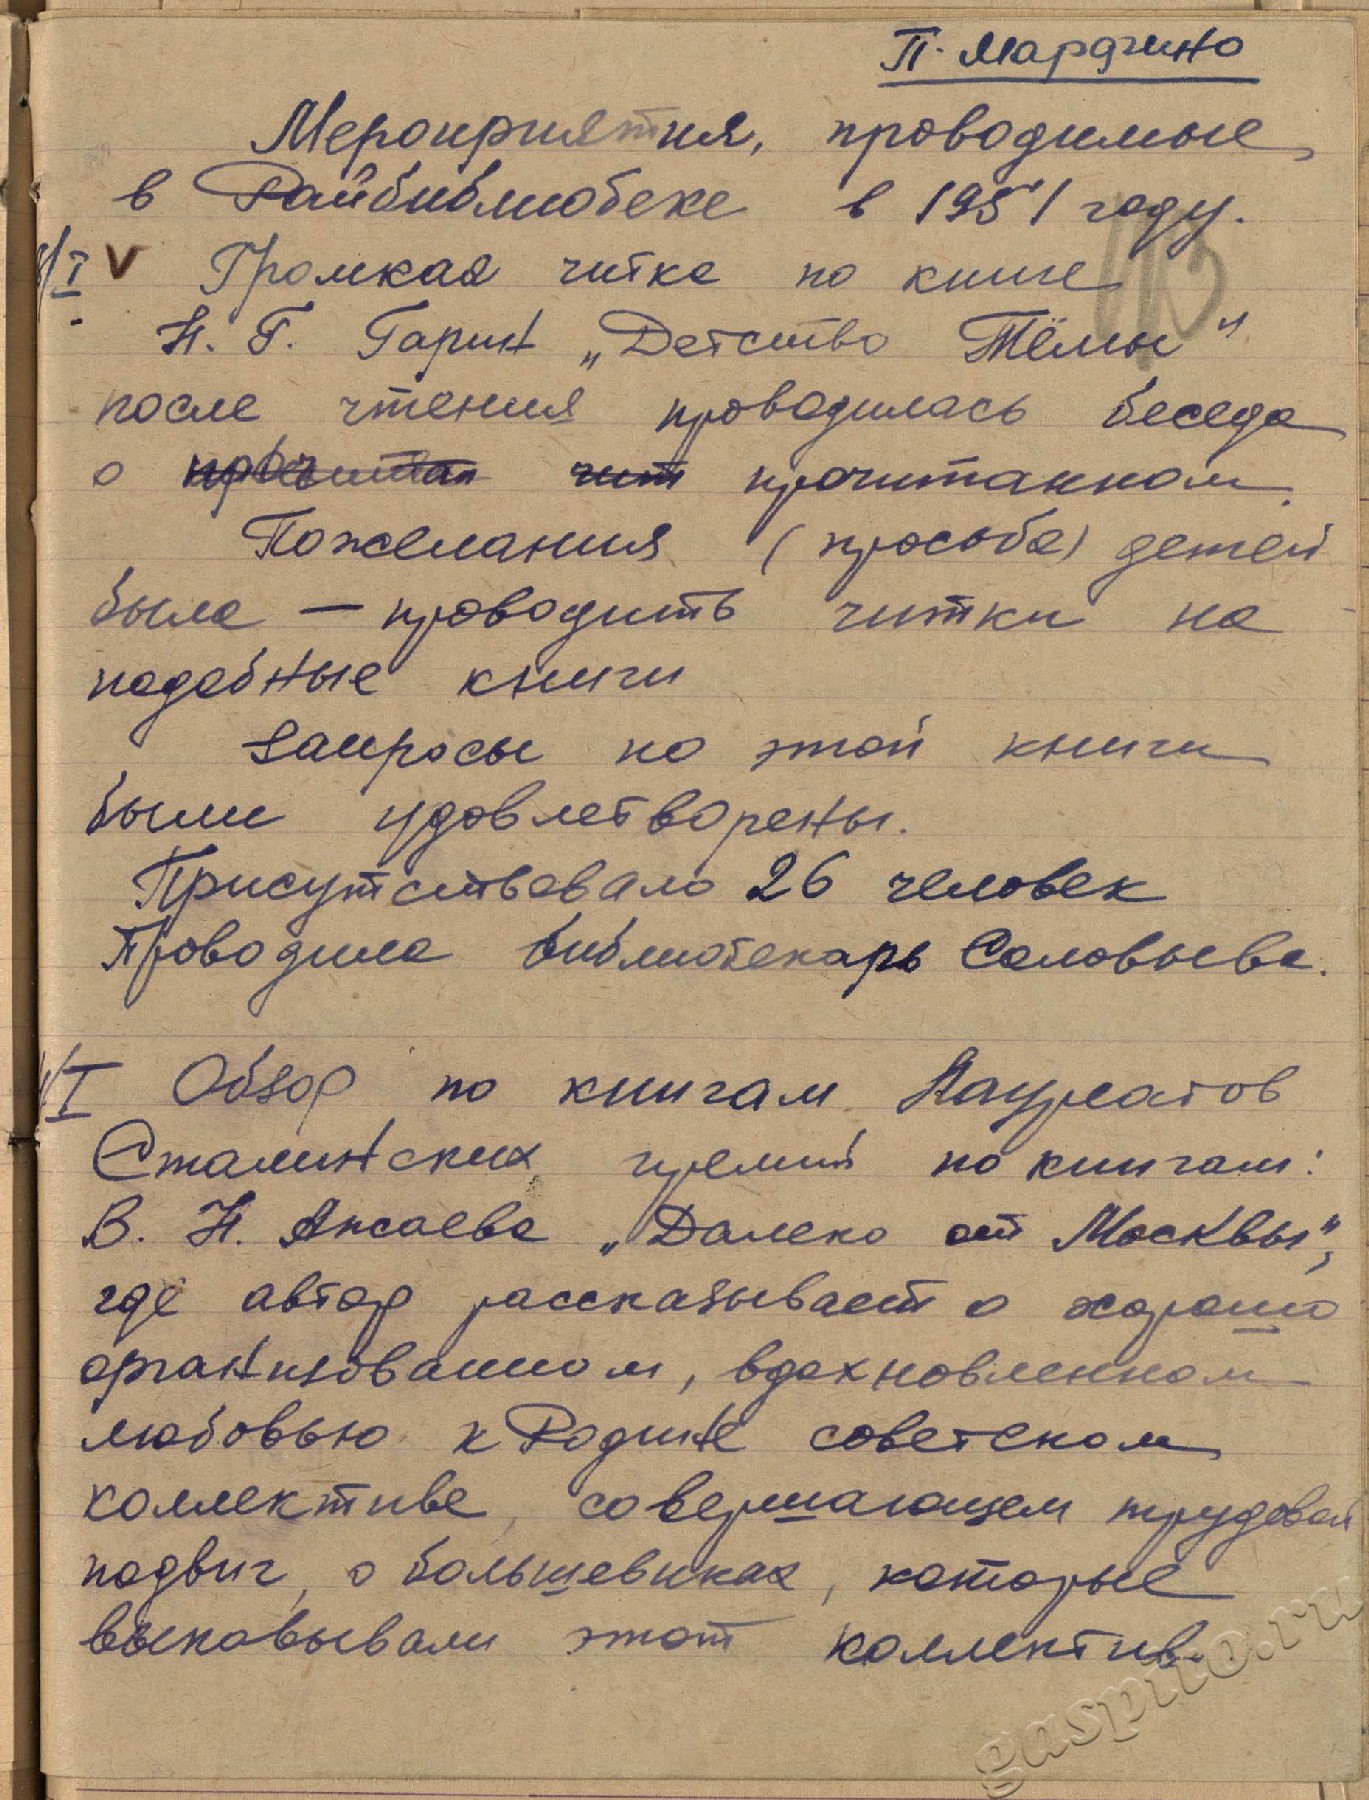 П. Марфино
Мероприятия, проводимые
в Райбиблиотеке в 1951 году.
I V Громкая читка по книге
Н. Г. Гарин „Детство Тёмы"
после чтения проводилась беседа
о прочитан чит прочитанном.
Пожелания (просьба) детей
была — проводить читки на
подобные книги
Запросы по этой книги
были удовлетворены.
Присутствовало 26 человек
Проводила библиотекарь Соловьева.
/I Обзор по книгам Лауреатов
Сталинских премий по книгам:
В. Н. Ажаева „Далеко от Москвы",
где автор рассказывает о хорошо
организованном, вдохновленном
любовью к Родине советском
коллективе, совершающем трудовой
подвиг, о большевиках, которые
выковывали этот коллектив.
gaspito.ru